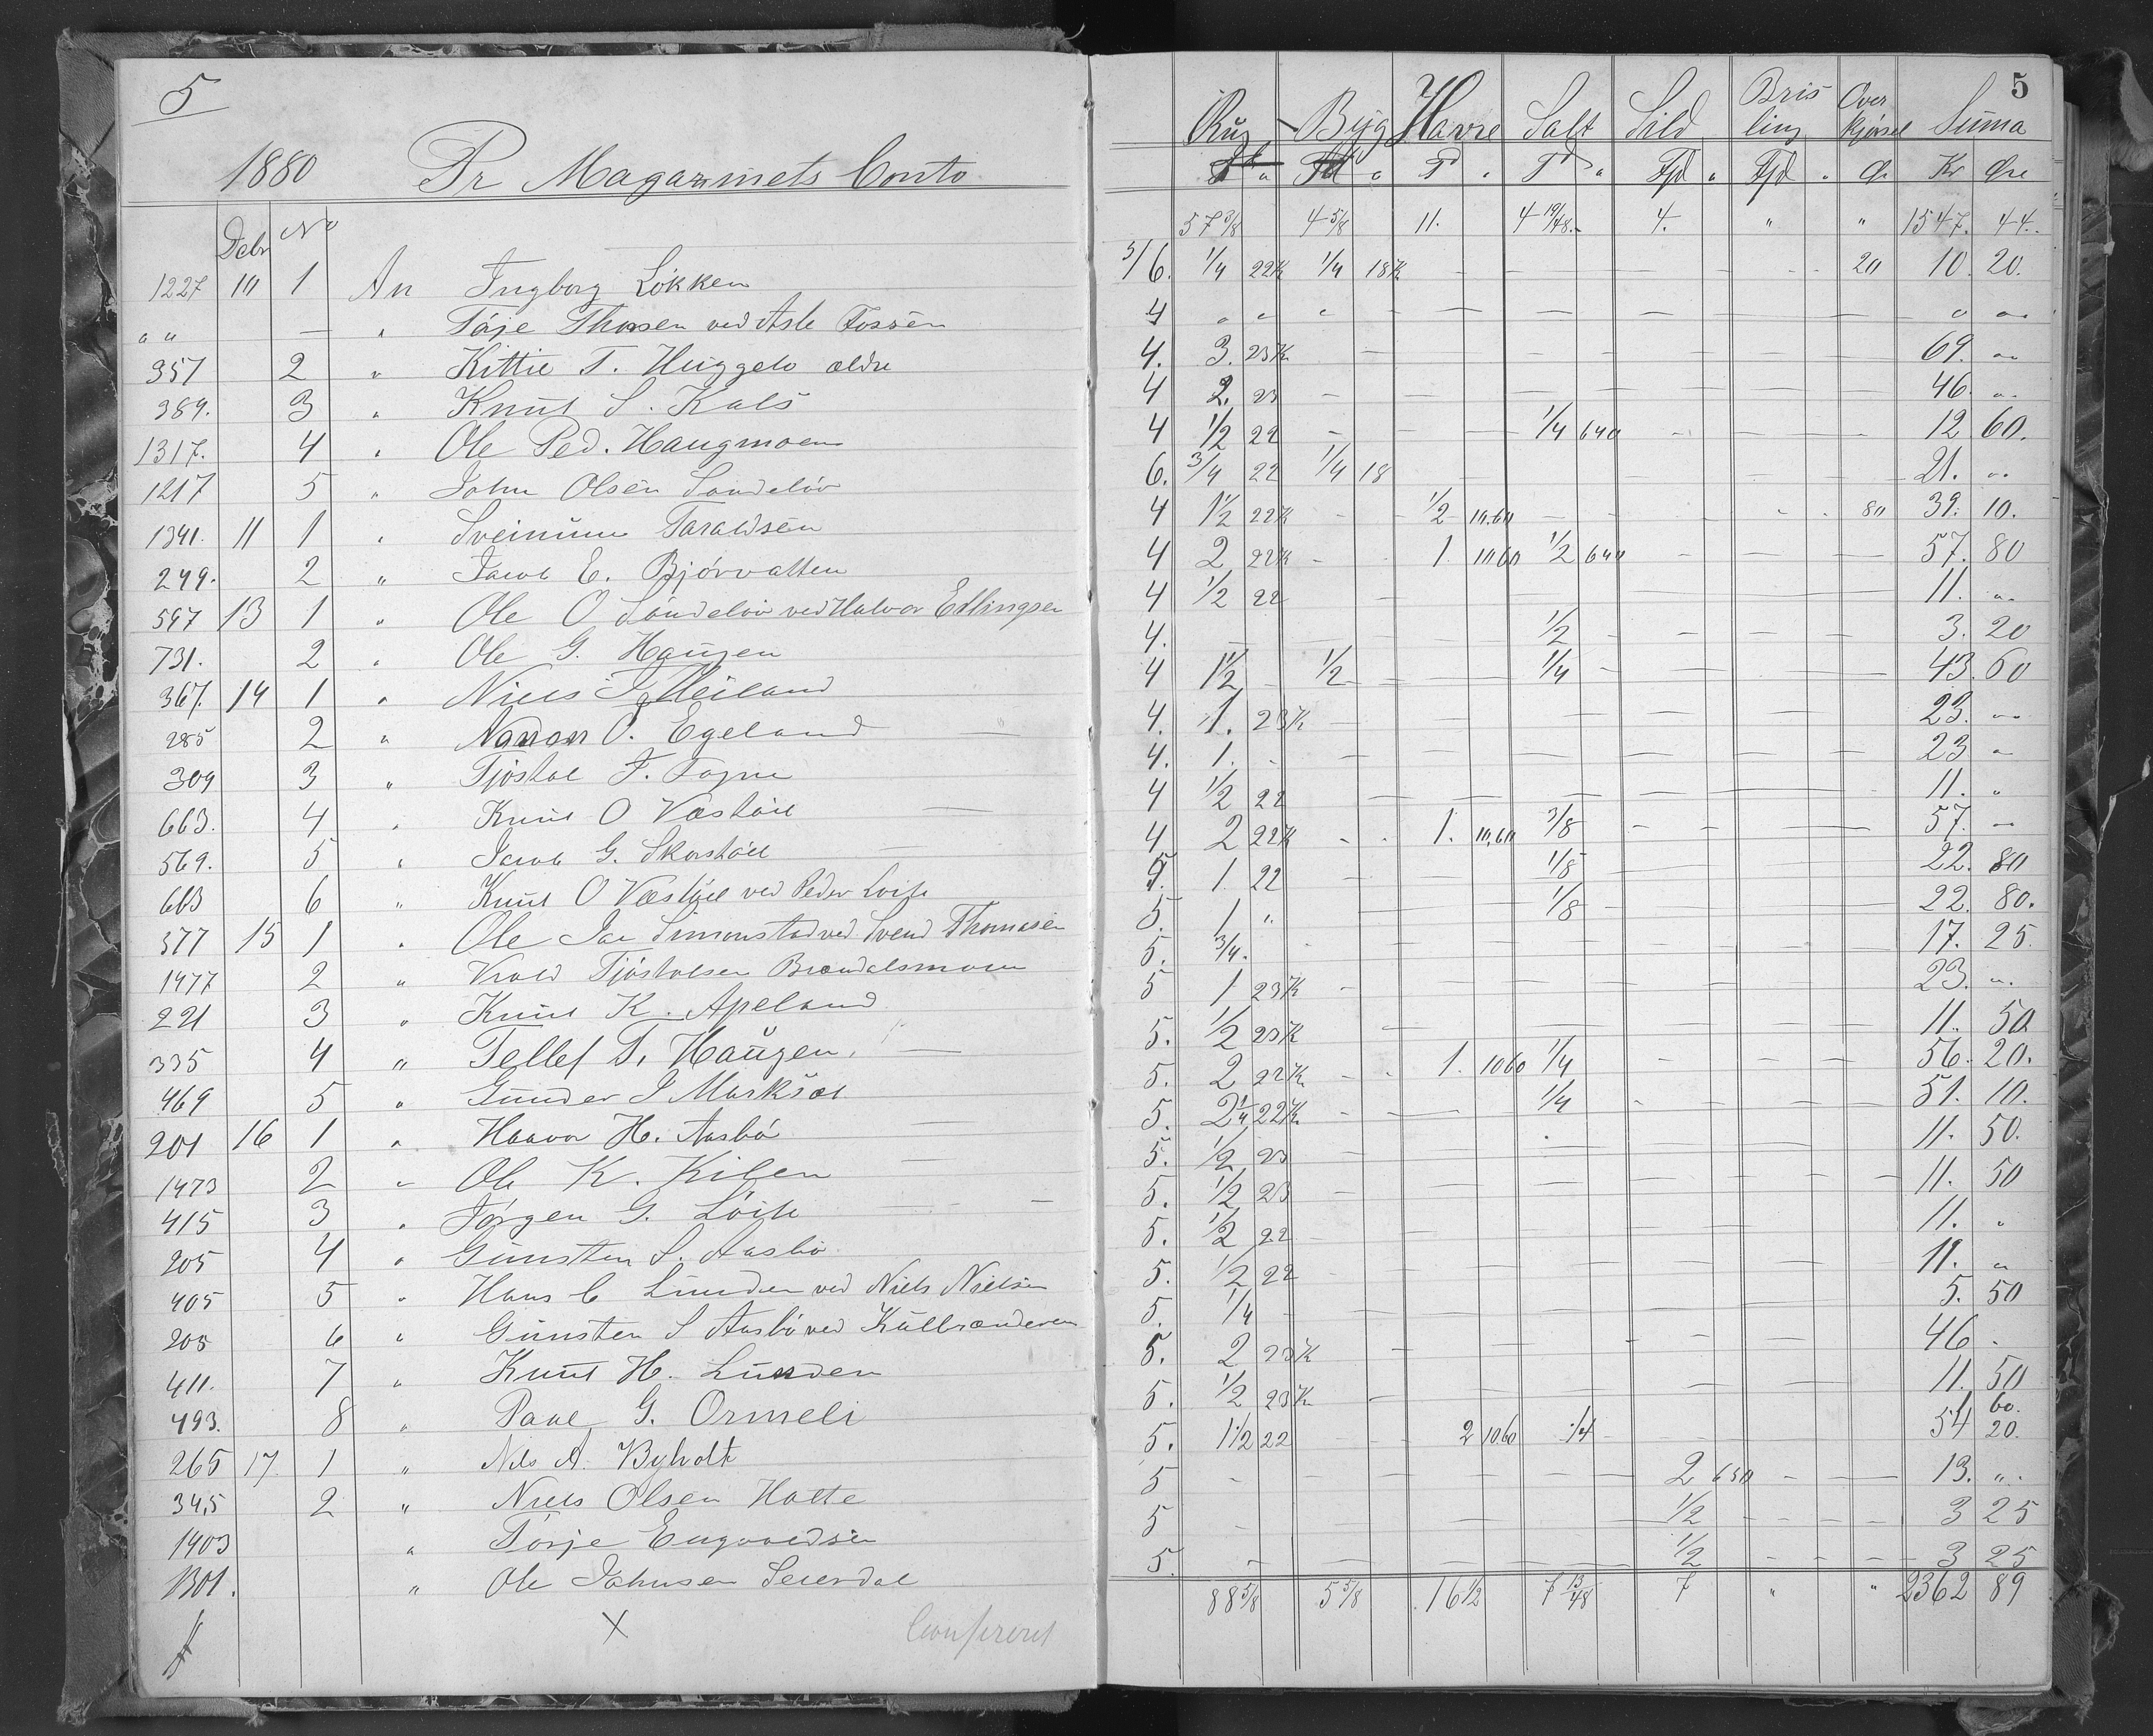 5
1880 Pr Magazinets Conto
Debr No
1227 10 1 An Ingborg Løkken
" " — " Tarje Thorsen ved Asle Fossen
357 2 " Kittil T. Huggelo ældre
389. 3 " Knut S. Kals
1317. 4 " Ole Ped. Haugmoen
1217 5 " John Olsen Sundeløv
1341. 11 1 " Sveinum Taraldsen
249. 2 " Jacob E. Bjørvatten
597 13 1 " Ole O Sundeløv ved Halvor Ellingsen
731. 2 " Ole G. Haugen
367. 14 1 " Niels J. Meiland
285 2 " O. Egeland
309 3 " Tjøstol T. Togne
663. 4 " Knut O Væstøll
569. 5 " Jacob G. Skorstøll
663 6 " Knut O Væstøll ved Peder Loite
377 15 1 " Ole Jac Simonstad ved Svend Thomasen
1477 2 " Vrold Tjøstolsen Brændalsmoen
221 3 " Knut K. Apeland
335 4 " Tellef T. Haugen.
469 5 " Gunder J Marksæt
201 16 1 " Haavor H. Aasbø
1473 2 " Ole K. Kilen
415 3 " Jørgen G. Løite
205 4 " Gunsten S. Aasbø
405 5 " Hans C Lunden ved Niels Nielsen
205 6 " Gunsten S Aasbø ved Kulbrænderen
411. 7 " Knut H. Lunden
493. 8 " Paul G. Ormeli
265 17. 1 " Nils A. Byholt
345 2 " Niels Olsen Hatte
1403 " Tørje Engvoldsen
1301. " Ole Johnsen Seierdal
X Confereret
5
Rug Byg Havre Salt Sild Brisling Overkjørsel Suma
Td " Td " Td " Td " Fjd " Fjd " Ør Kr Øre
57 3/8 4 5/8 11. 4 19/48 4. " " 1547. 44.
3/6. 1/4 22K 1/4 18K — — — — 20 10. 20.
4 " " " — — — — — " "
4. 3. 23K — — — — — 69. "
4 2. 23 — — — — — 46. "
4 1/2 22 — — 1/4 640 — — — 12 60.
6. 3/4 22 1/4 18 — — — — — 21. "
4 1 1/2 22K — 1/2 10.60 — — — 80 39. 10.
4 2 22K — 1. 1060 1/2 640 — — — 57. 80
4 1/2 22 — — — — — — 11. "
4. — — — 1/2 — — — 3. 20
4 1 1/2 — 1/2 — 1/4 — — — 43. 60
4. 1. 23K — — — — — 23. "
4. 1. — — — — — — 23 "
4 1/2 22 — — — — — — 11. "
4 2 22K — 1. 10,60 3/8 — — — 57. "
5. 1 22 — — 1/8 — — — 22. 80
5. 1 " — — 1/8 — — — 22. 80.
5. 3/4. — — — — — — 17. 25.
5 1 23K — — — — — — 23. "
5. 1/2 23K — — — — — — 11. 50
5. 2 22K — 1. 1060 1/4 — — — 56. 20.
5. 2 1/4 22K — — 1/4 — — — 51. 10.
5. 1/2 23 — — — — — — 11. 50.
5. 1/2 23 — — — — — — 11. 50
5. 1/2 22 — — — — — — 11. "
5. 1/2 22 — — — — — — 11. "
5. 1/4 — — — — — — 5. 50
5. 2 23K — — — — — — 46 -
5. 1/2 23K — — — — — — 11. 50
5. 1 1/2 22 — 2 1060 1/4 — — — 54 60. 20.
5 — — — — 2 650 — — 13. "
5 — — — — 1/2 — — 3 25
5. — — — — 1/2 — — 3 25
88 5/8 5 5/8 16 1/2 7 13/48 7 " " 2362 89